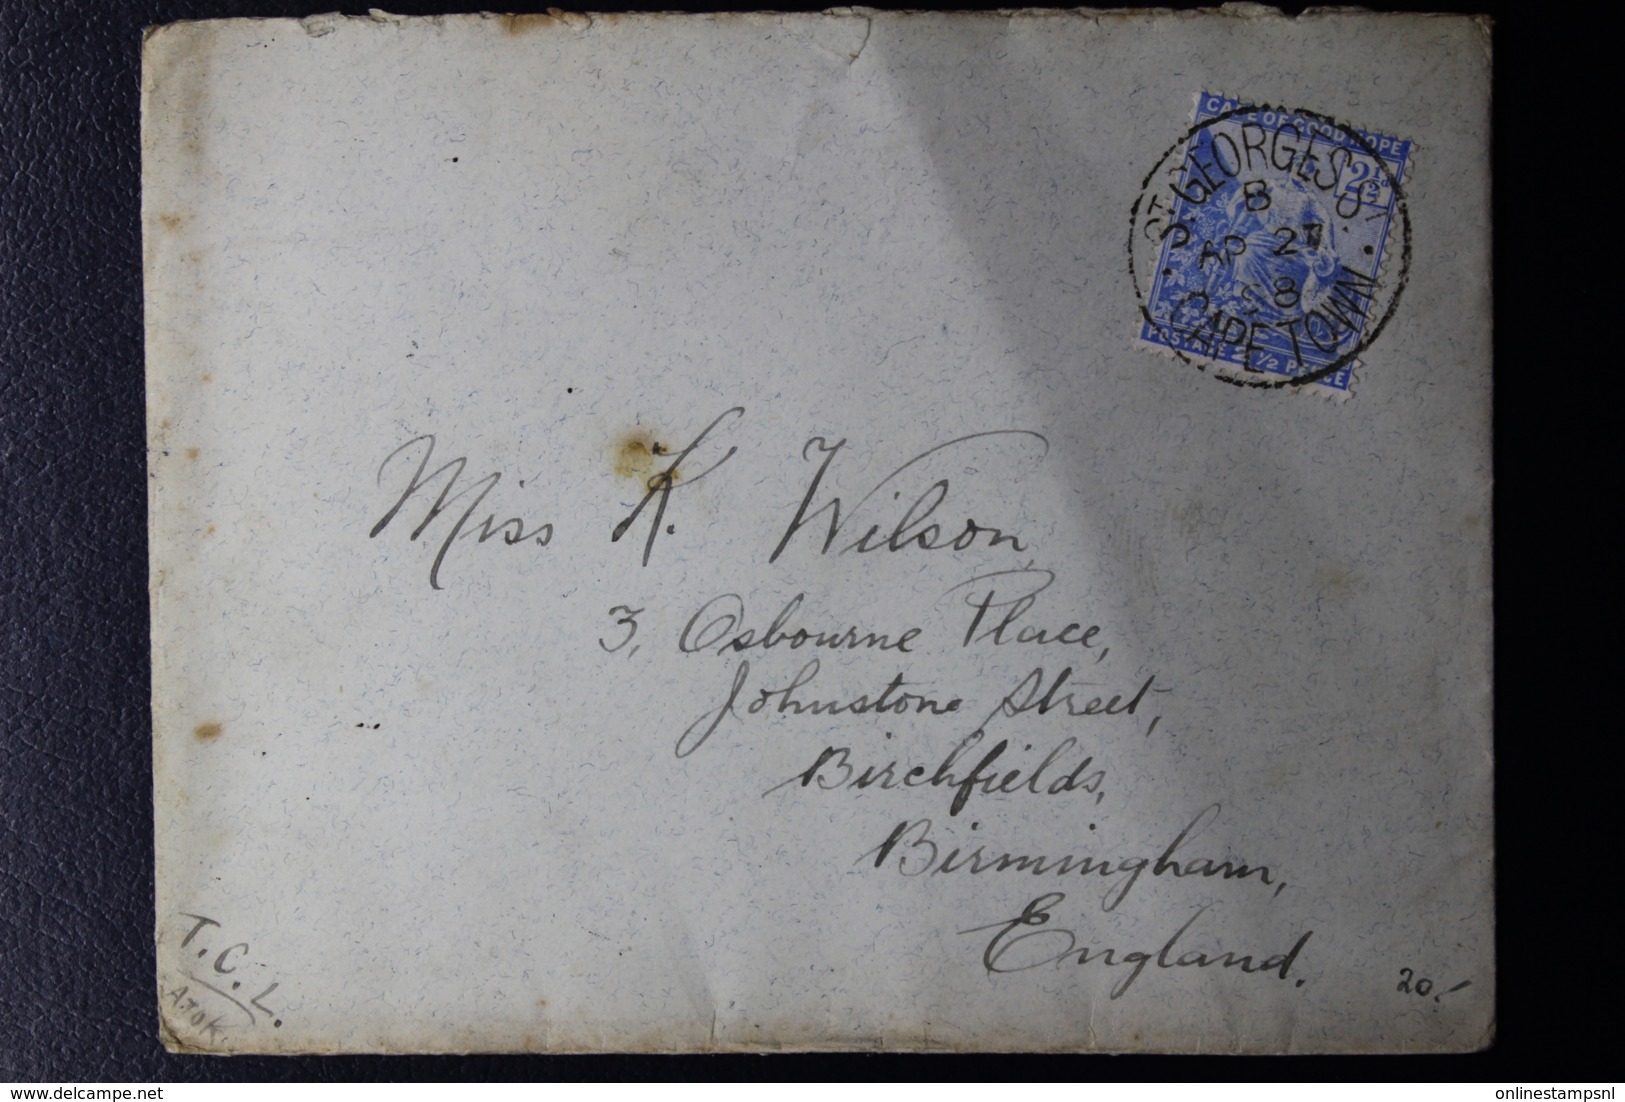 CAPE OF GOOD HOPE
2½d
POSTAGE 2½ PENCE
ST. GEORGES ST.
B
AP 27
98
CAPE TOWN
Miss K. Wilson,
3, Osbourne Place,
Johnstone Street,
Birchfields,
Birmingham,
England.
T.C.L.
20.-
onlinestampsnl